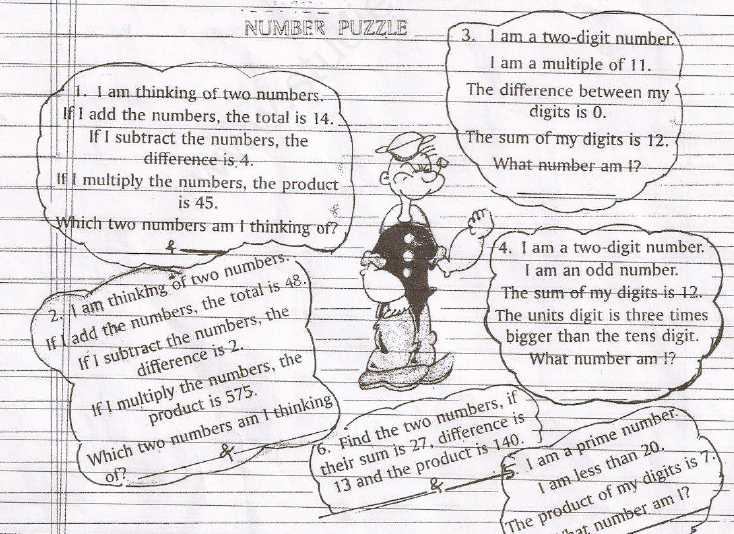 NUMBER PUZZLE
1. I am thinking of two numbers.
If I add the numbers, the total is 14.
If I subtract the numbers, the
difference is 4.
If I multiply the numbers, the product
is 45.
Which two numbers am I thinking of?
&
2. I am thinking of two numbers.
If I add the numbers, the total is 48.
If I subtract the numbers, the
difference is 2.
If I multiply the numbers, the
product is 575.
Which two numbers am I thinking
of? &
3. I am a two-digit number.
I am a multiple of 11.
The difference between my
digits is 0.
The sum of my digits is 12.
What number am I?
4. I am a two-digit number.
I am an odd number.
The sum of my digits is 12.
The units digit is three times
bigger than the tens digit.
What number am I?
6. Find the two numbers, if
their sum is 27, difference is
13 and the product is 140.
&
5. I am a prime number.
I am less than 20.
The product of my digits is 7.
What number am I?